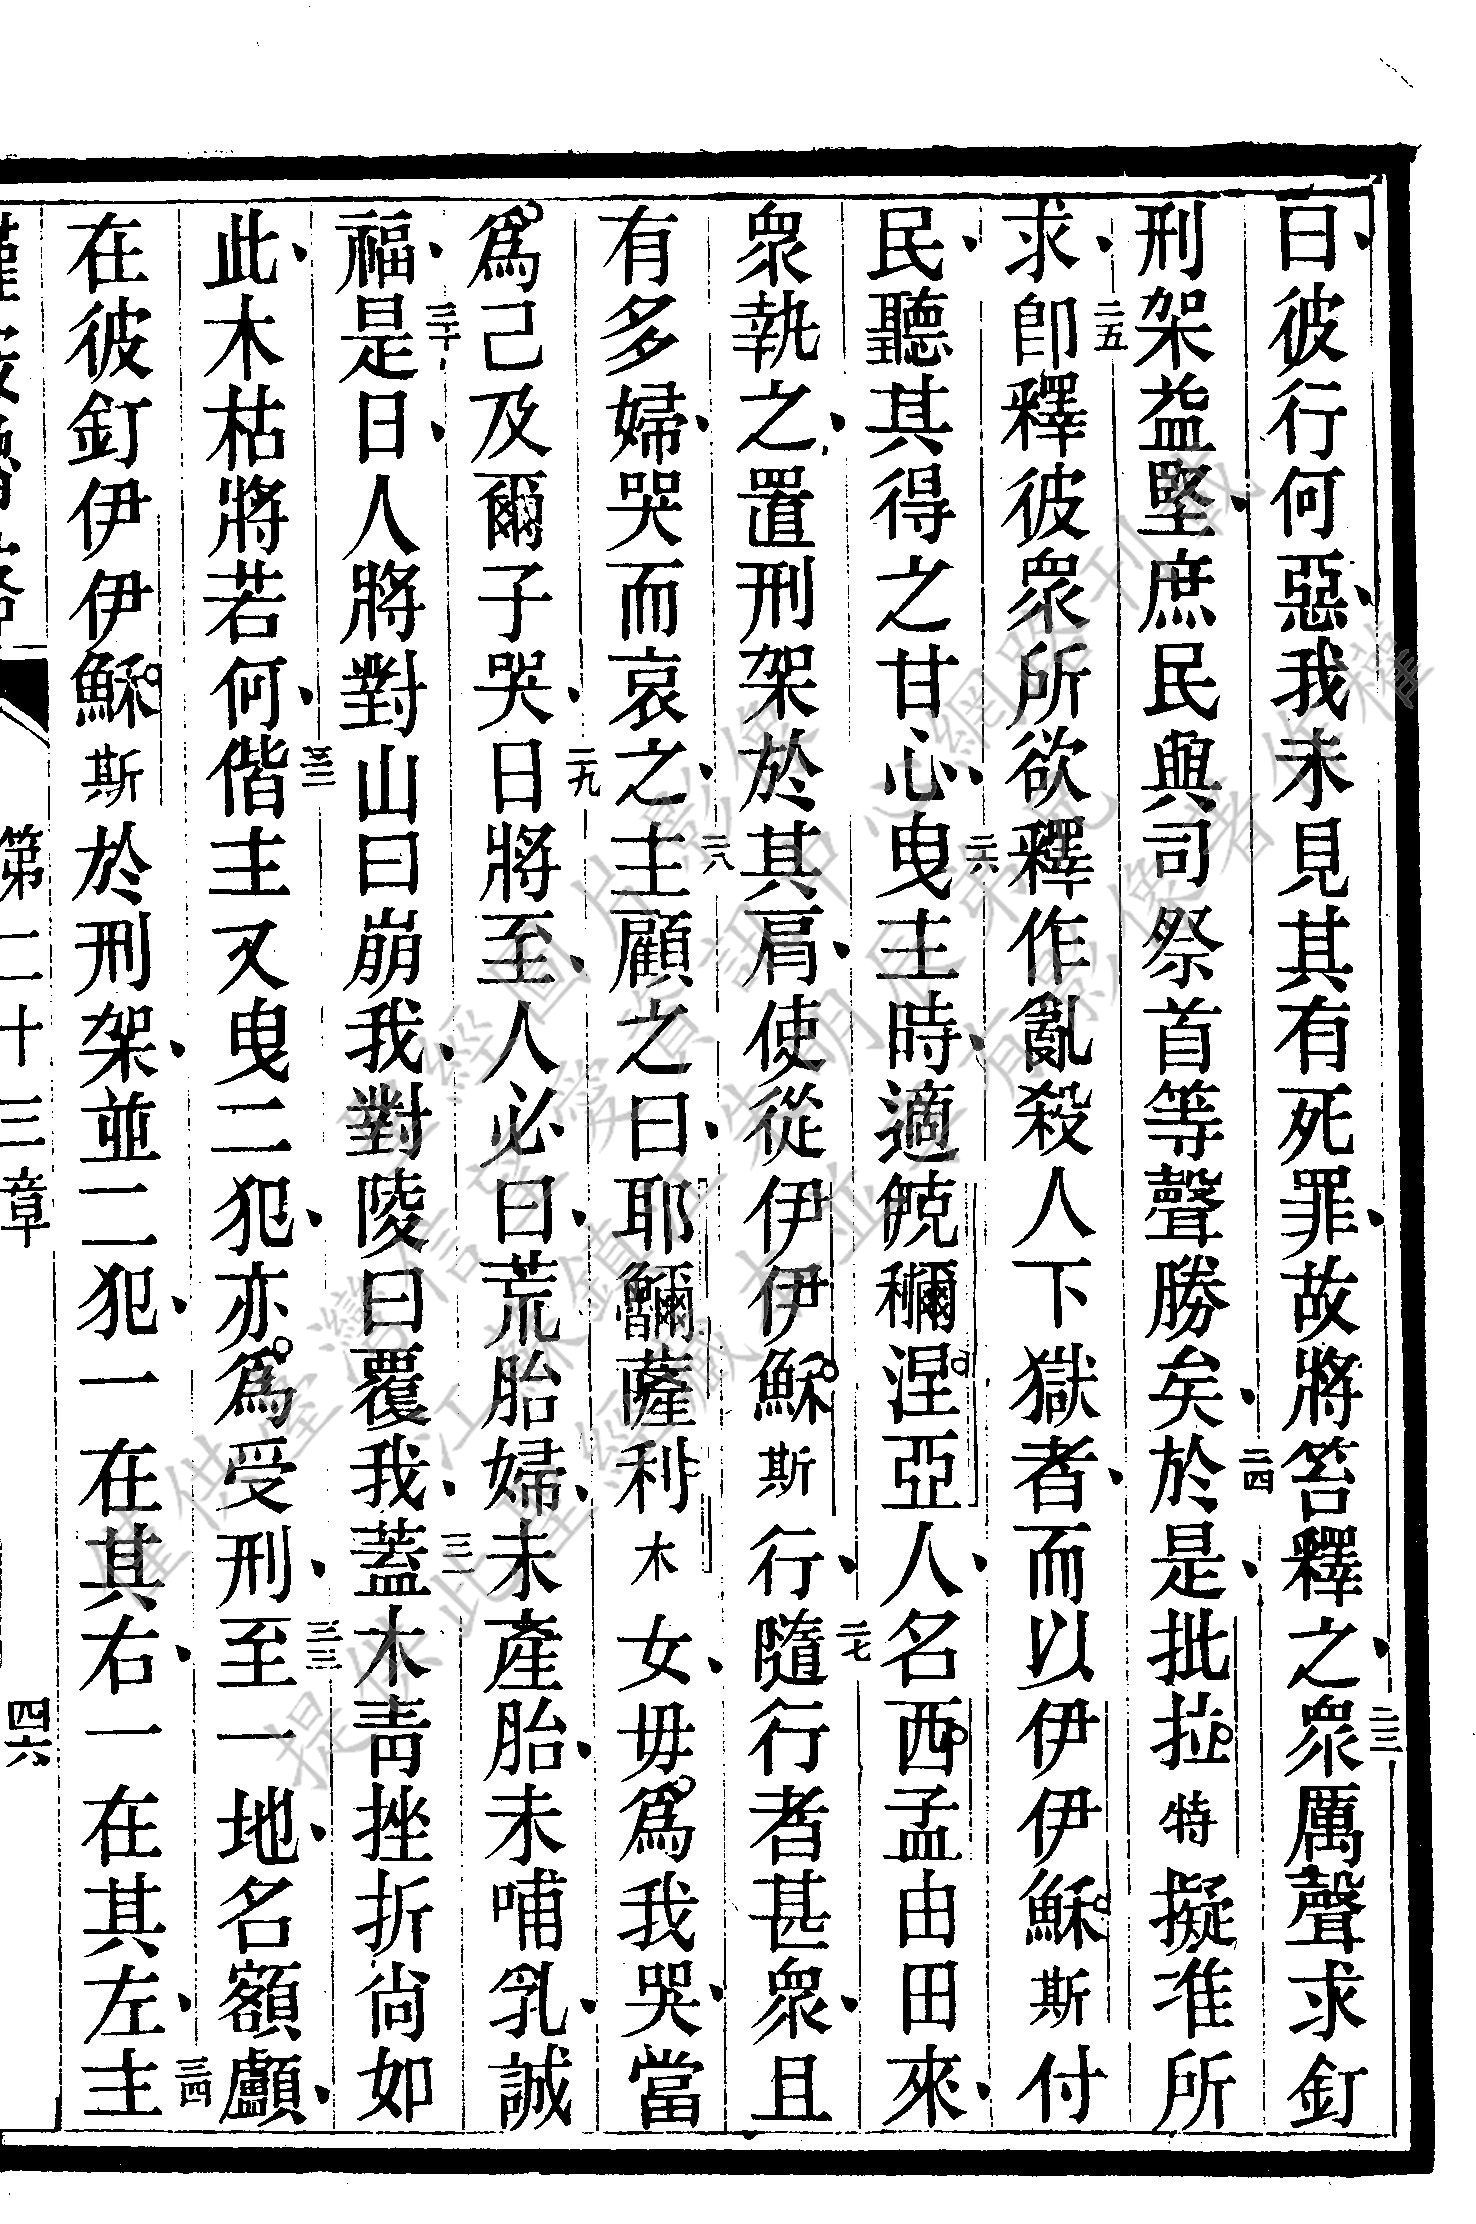 曰彼行何惡我未見其有死罪故將笞釋之二三眾厲聲求釘
刑架益堅庶民與司祭首等聲勝矣二四於是批拉特擬准所
求二五卽釋彼眾所欲釋作亂殺人下獄者而以伊伊穌斯付
民聽其得之甘心二六曳主時適𩚵穪涅亞人名西孟由田來
眾執之置刑架於其肩使從伊伊穌斯行二七隨行者甚眾且
有多婦哭而哀之二八主顧之曰耶薩利木女毋爲我哭當
爲己及爾子哭二九日將至人必曰荒胎婦未產胎未哺乳誠
福三十是日人將對山曰崩我對陵曰覆我三一蓋木靑挫折尚如
此木枯將若何三二偕主又曳二犯亦爲受刑三三至一地名額顱
在彼釘伊伊穌斯於刑架並二犯一在其右一在其左三四主
第二十三章 四六